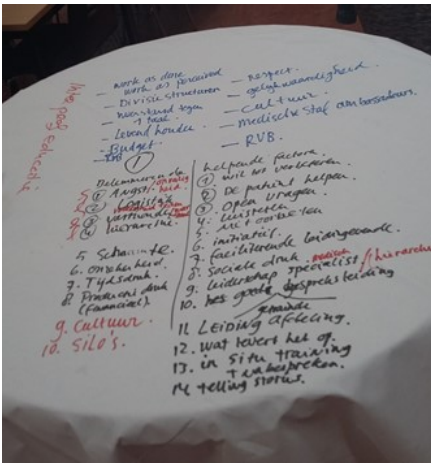 - work as done
work as perceived
- Divisie structuren
- weerstand tegen
1 taal
- Levend houden
- Budget
- respect.
- gelijkwaardigheid.
- Cultuur
- medische staf ambassadeurs.
- RVB.
①
Belemmerende
① Angst
② Logistiek
③
④ hierarchie
5 Schaamte.
6. onzekerheid.
7. Tijdsdruk.
8. Productie druk
(financieel).
9. Cultuur
10. Silo's.
helpende factoren.
① wil tot verbeteren.
② De patient helpen.
③ Open vragen.
4. luisteren
5.
6. initiatief.
7. faciliterende leidinggevende.
8. Sociale druk.
9. leiderschap specialist / hierarchie
10. gespreksleiding
11 LEIDING afdeling.
12. wat levert het op.
13. in situ training
+ nabespreken.
14 telling stories.